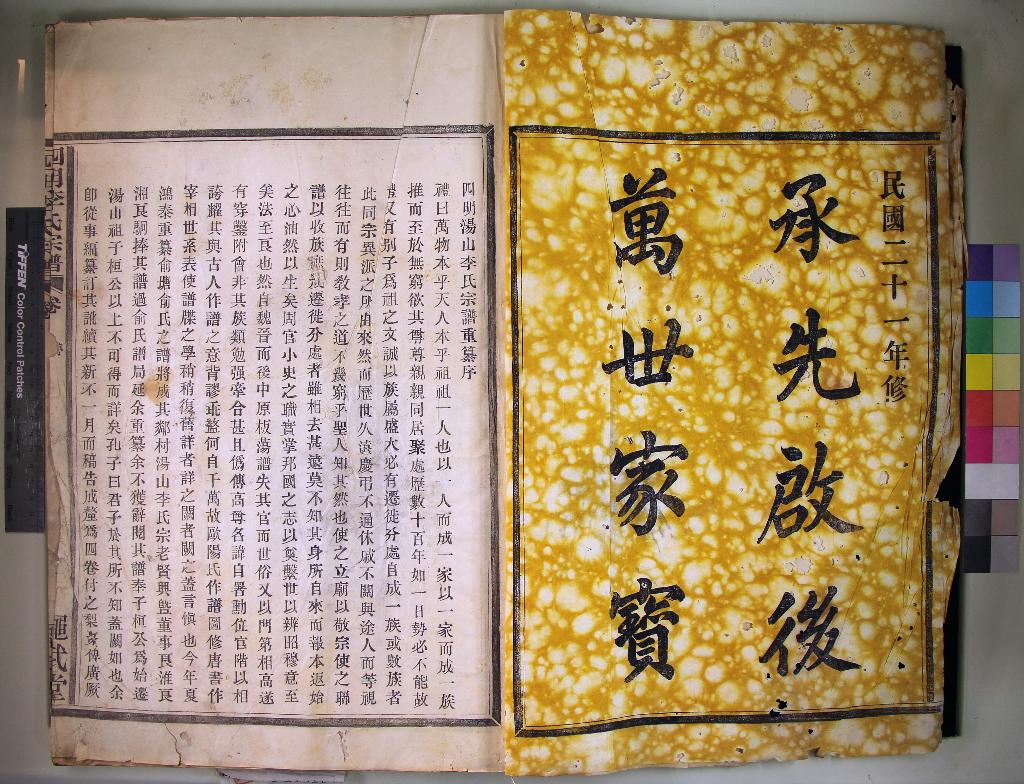 民國二十一年修
承先啟後
萬世家寶
四明湯山李氏宗譜重纂序
禮曰萬物本乎天人本乎祖祖一人也以一人而成一家以一家而成一族
推而至於無窮欲其尊尊親親同居聚處歷數十百年如一日勢必不能故
禮又有別子爲祖之文誠以族屬盛大必有遷徙分處自成一族或數族者
此同宗異派之所由來然而歷世久遠慶弔不通休戚不關與途人而等視
往往而有則敦孝之道不幾窮乎聖人知其然也使之立廟以敬宗使之聯
譜以收族無論遷徙分處者雖相去甚遠莫不知其身所自來而報本返始
之心油然以生矣周官小史之職實掌邦國之志以奠繫世以辨昭穆意至
矣法至良也然自魏晉而後中原板蕩譜失其官而世俗又以門第相高遂
有穿鑿附會非其族類勉强牽合甚且僞傳高尊名諱自署勳位官階以相
誇耀其與古人作譜之意背謬乖盩何自千萬故歐陽氏作譜圖修唐書作
宰相世系表使譜牒之學稍稍復舊詳者詳之闕者闕之蓋言愼也今年夏
鴻泰重纂俞氏之譜將成其鄰村湯山李氏宗老賢興曁董事良淮良
湘良駉捧其譜過俞氏譜局延余重纂余不獲辭閱其譜奉子桓公爲始遷
湯山祖子桓公以上不可得而詳矣孔子曰君子於其所不知蓋闕如也余
卽從事編纂訂其訛續其新不一月而稿告成釐爲四卷付之梨棗俾廣厥
李氏宗譜
繩武堂
TIFFEN Color Control Patches